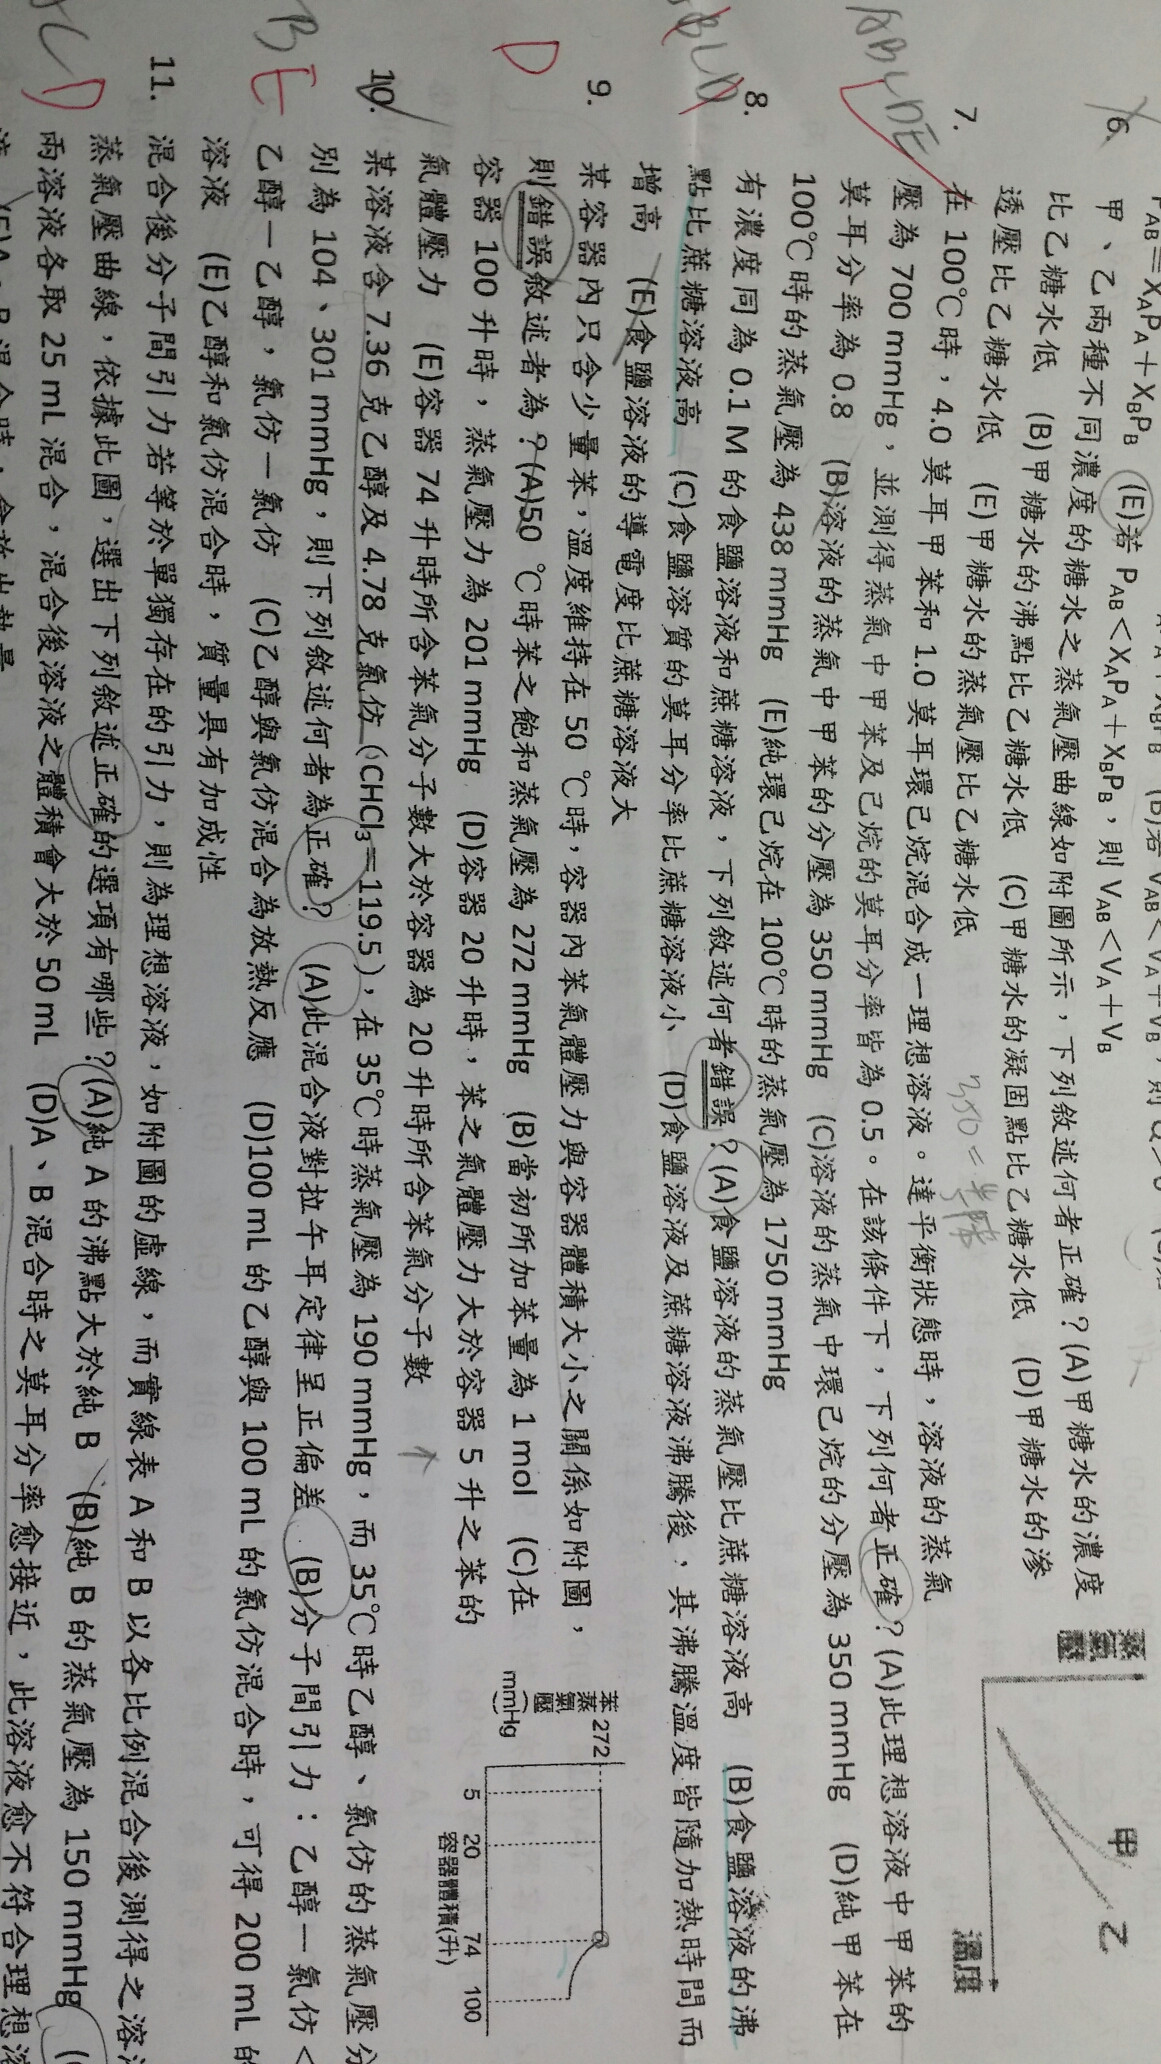 PAB=XAPA+XBPB (E)若 PAB<XAPA+XBPB,則 VAB<VA+VB
6. 甲、乙兩種不同濃度的糖水之蒸氣壓曲線如附圖所示,下列敘述何者正確?(A)甲糖水的濃度
比乙糖水低 (B)甲糖水的沸點比乙糖水低 (C)甲糖水的凝固點比乙糖水低 (D)甲糖水的滲
透壓比乙糖水低 (E)甲糖水的蒸氣壓比乙糖水低
蒸氣壓
甲
乙
溫度
ABCDE
7. 在 100℃時,4.0 莫耳甲苯和 1.0 莫耳環己烷混合成一理想溶液。達平衡狀態時,溶液的蒸氣
壓為 700 mmHg,並測得蒸氣中甲苯及己烷的莫耳分率皆為 0.5。在該條件下,下列何者正確?(A)此理想溶液中甲苯的
莫耳分率為 0.8 (B)溶液的蒸氣中甲苯的分壓為 350 mmHg (C)溶液的蒸氣中環己烷的分壓為 350 mmHg (D)純甲苯在
100℃時的蒸氣壓為 438 mmHg (E)純環己烷在 100℃時的蒸氣壓為 1750 mmHg
BCD
8. 有濃度同為 0.1 M 的食鹽溶液和蔗糖溶液,下列敘述何者錯誤?(A)食鹽溶液的蒸氣壓比蔗糖溶液高 (B)食鹽溶液的沸
點比蔗糖溶液高 (C)食鹽溶質的莫耳分率比蔗糖溶液小 (D)食鹽溶液及蔗糖溶液沸騰後,其沸騰溫度皆隨加熱時間而
增高 (E)食鹽溶液的導電度比蔗糖溶液大
D
9. 某容器內只含少量苯,溫度維持在 50 ℃時,容器內苯氣體壓力與容器體積大小之關係如附圖,
則錯誤敘述者為?(A)50 ℃時苯之飽和蒸氣壓為 272 mmHg (B)當初所加苯量為 1 mol (C)在
容器 100 升時,蒸氣壓力為 201 mmHg (D)容器 20 升時,苯之氣體壓力大於容器 5 升之苯的
氣體壓力 (E)容器 74 升時所含苯氣分子數大於容器為 20 升時所含苯氣分子數
苯蒸氣壓(mmHg)
272
5 20 74 100
容器體積(升)
BE
10. 某溶液含 7.36 克乙醇及 4.78 克氯仿(CHCl3=119.5),在 35℃時蒸氣壓為 190 mmHg,而 35℃時乙醇、氯仿的蒸氣壓分
別為 104、301 mmHg,則下列敘述何者為正確? (A)此混合液對拉午耳定律呈正偏差 (B)分子間引力:乙醇-氯仿<
乙醇-乙醇,氯仿-氯仿 (C)乙醇與氯仿混合為放熱反應 (D)100 mL 的乙醇與 100 mL 的氯仿混合時,可得 200 mL 的
溶液 (E)乙醇和氯仿混合時,質量具有加成性
CD
11. 混合後分子間引力若等於單獨存在的引力,則為理想溶液,如附圖的虛線,而實線表 A 和 B 以各比例混合後測得之溶
蒸氣壓曲線,依據此圖,選出下列敘述正確的選項有哪些?(A)純 A 的沸點大於純 B (B)純 B 的蒸氣壓為 150 mmHg
兩溶液各取 25 mL 混合,混合後溶液之體積會大於 50 mL (D)A、B 混合時之莫耳分率愈接近,此溶液愈不符合理想